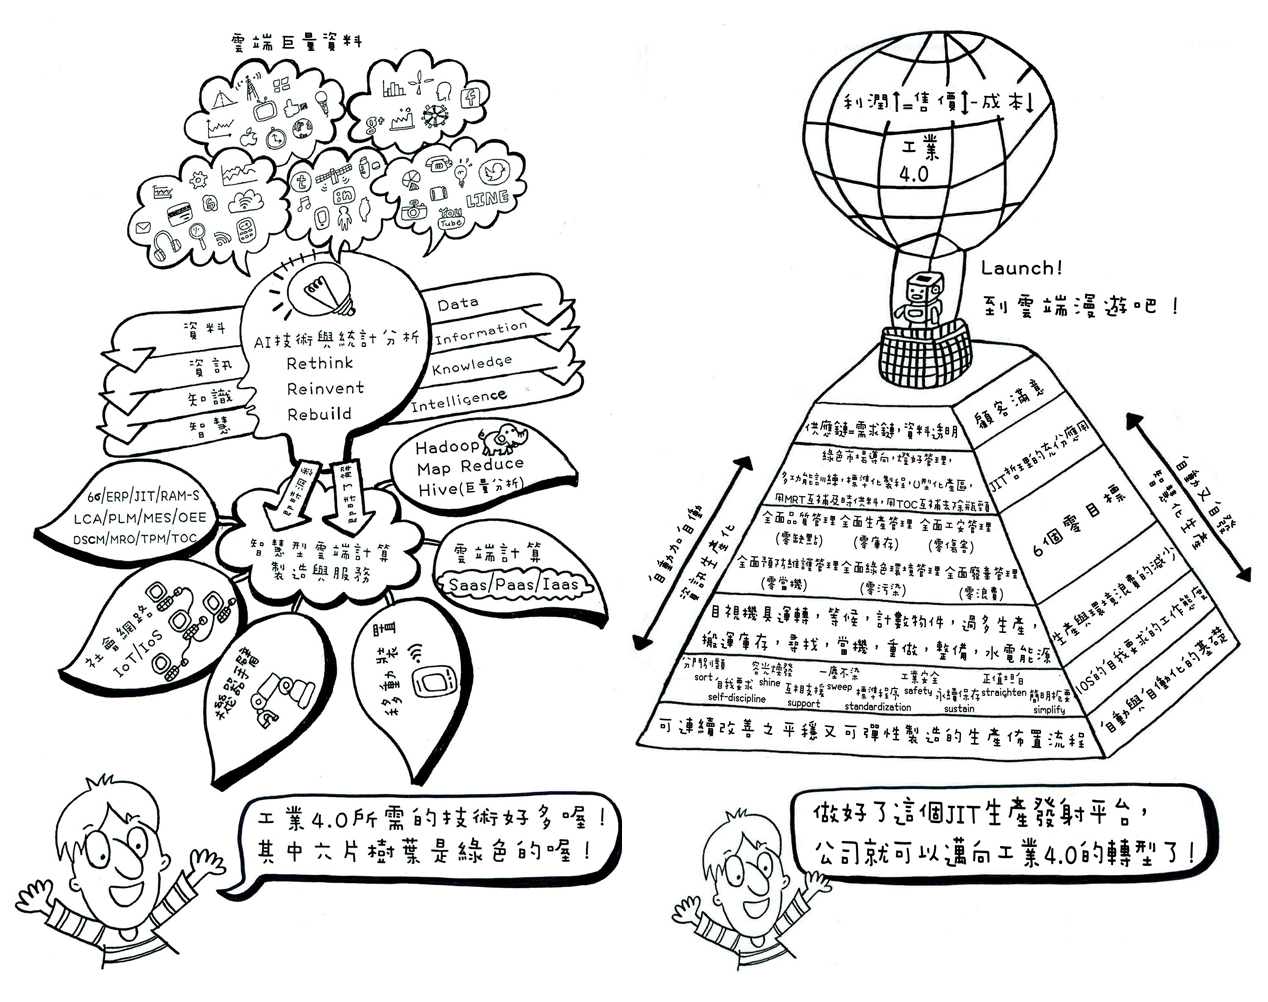 雲端巨量資料
LINE
You
Tube
資料
資訊
知識
智慧
AI技術與統計分析
Rethink
Reinvent
Rebuild
Data
Information
Knowledge
Intelligence
即時洞察
即時了解
Hadoop
Map Reduce
Hive(巨量分析)
6σ/ERP/JIT/RAM-S
LCA/PLM/MES/OEE
DSCM/MRO/TPM/TOC
智慧型雲端計算
製造與服務
雲端計算
Saas/Paas/Iaas
社會網路
IoT/IoS
感器手臂
移動裝置
工業4.0所需的技術好多喔！
其中六片樹葉是綠色的喔！
利潤↑=售價↕-成本↓
工業
4.0
Launch!
到雲端漫遊吧！
供應鏈=需求鏈，資料透明
綠色市場導向，燈好管理，
多功能訓練，標準化製程，U型化產區，
用MRT互補及時供料，用TOC互補去除瓶頸
全面品質管理 全面生產管理 全面工安管理
(零缺點) (零庫存) (零傷害)
全面預防維護管理 全面綠色環境管理 全面廢棄管理
(零當機) (零污染) (零浪費)
目視機具運轉，等候，計數物件，過多生產，
搬運庫存，尋找，當機，重做，整備，水電能源
分門別類 容光煥發 一塵不染 工業安全 正值坦白
sort shine sweep safety straighten
自我要求 互相支援 標準程序 永續保存 簡明扼要
self-discipline support standardization sustain simplify
可連續改善之平穩又可彈性製造的生產佈置流程
顧客滿意
JIT哲理的充分應用
6個零目標
生產與環境浪費的減少
10S的自我要求的工作態度
自動與自働化的基礎
自動加自働
資訊生產化
自動又自發
智慧化生產
做好了這個JIT生產發射平台，
公司就可以邁向工業4.0的轉型了！